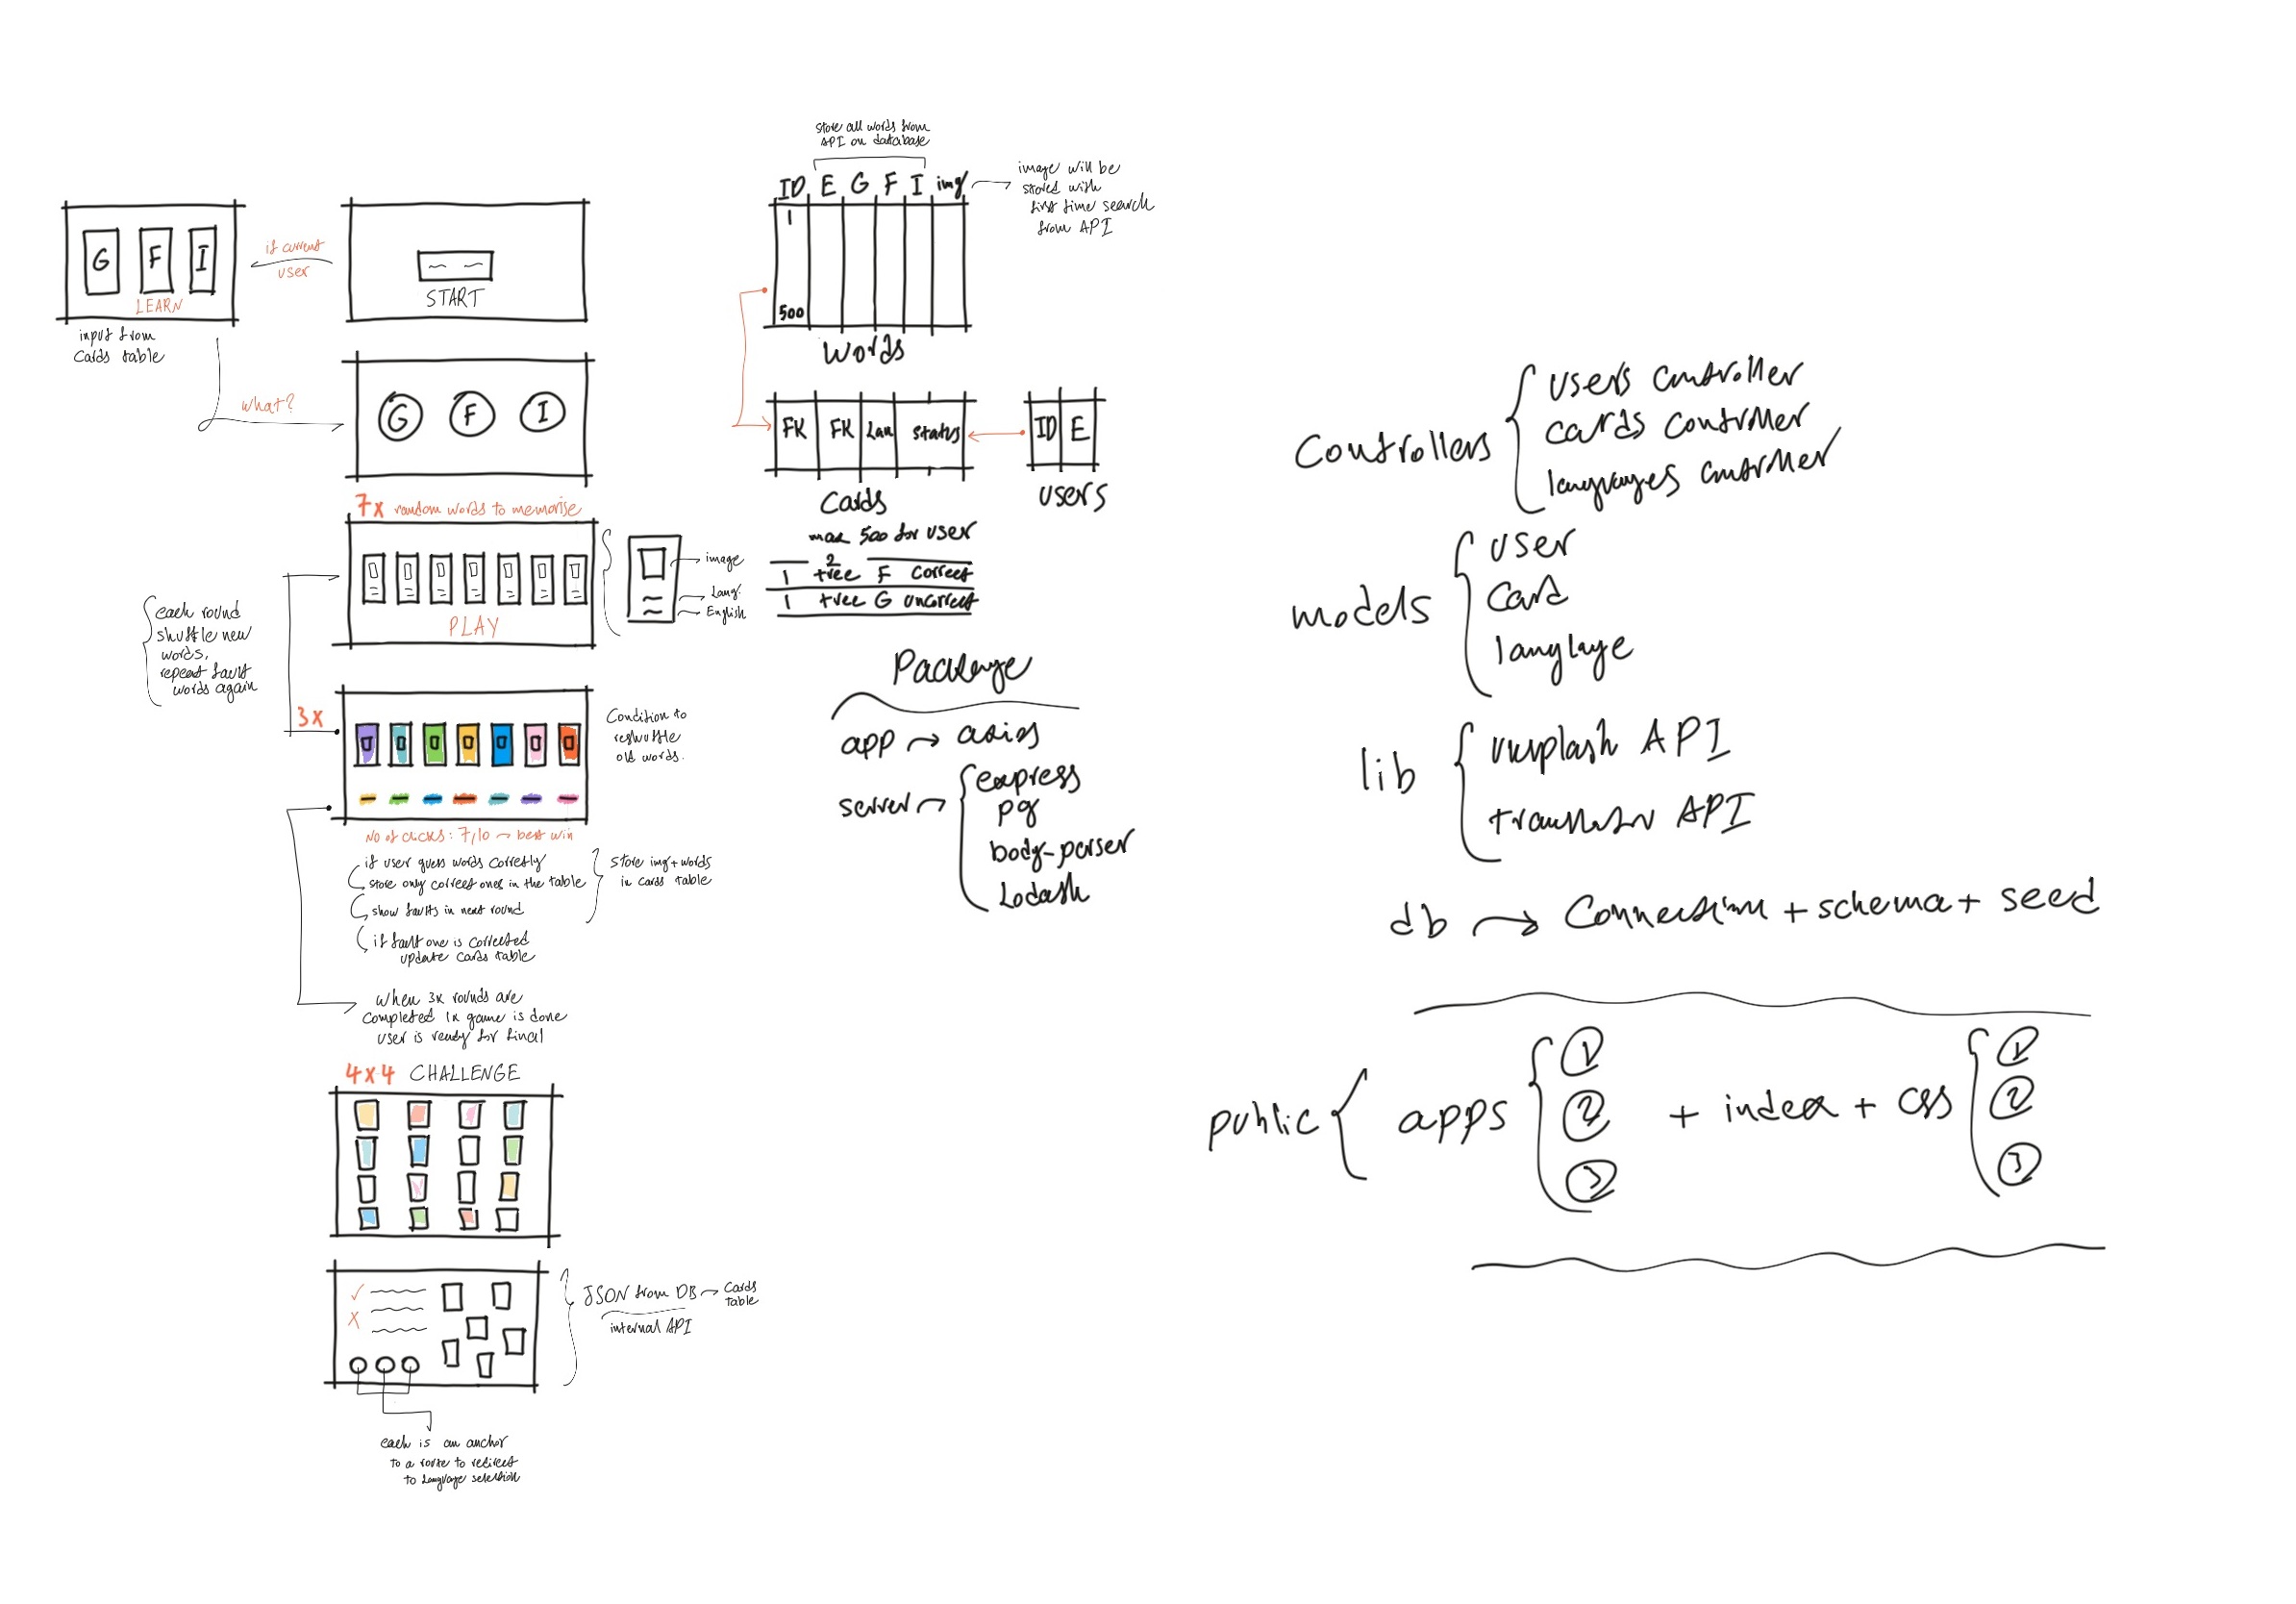 G F I
LEARN
input from
Cards table
if current
user
START
what?
G F I
7x random words to memorise
PLAY
image
Lang.
English
{ each round
shuffle new
words,
repeat fault
words again
3x
Condition to
reshuffle
old words.
No of clicks: 7,10 → best win
if user guess words correctly
store only correct ones in the table
show faults in next round
if fault one is corrected
update cards table
store img+words
in cards table
when 3x rounds are
completed 1x game is done
user is ready for final
4x4 CHALLENGE
✓
X
JSON from DB → Cards
table
internal API
each is an anchor
to a route to redirect
to language selection
store all words from
API on database
ID E G F I img
1
500
Words
image will be
stored with
first time search
from API
FK FK Lan status
Cards
ID E
users
max 500 for user
1 2 tree F Correct
1 tree G uncorrect
Package
app → axios
server → { express
pg
body-parser
Lodash
Controllers { users controller
cards controller
languages controller
models { user
Card
langlage
lib { unsplash API
translator API
db → Connection + schema + seed
public { apps { 1 2 3 + index + css { 1 2 3